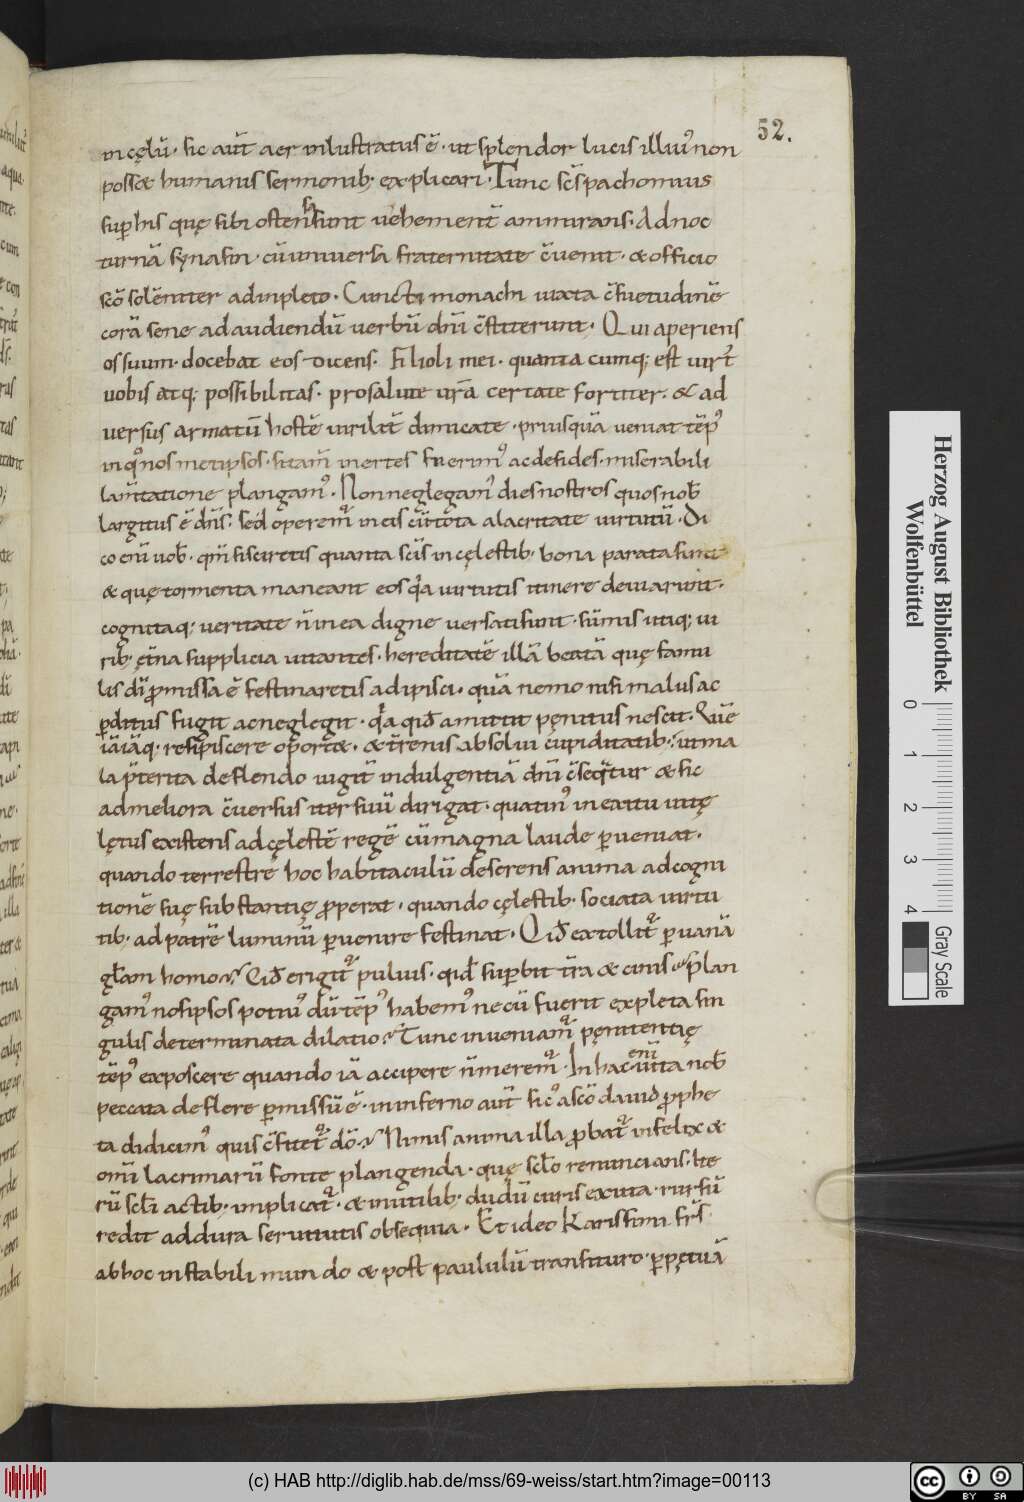 52.
in cęlũ· sic aut̃ aer inlustratus ẽ· ut splendor lucis illiuꝰ non
possæ humanis sermonib; explicari· Tunc scs̃ pachomius
suꝑ his quę sibi ostensa sunt vehement̃ ammirans· Ad noc
turnã synasin· cũ universa fraternitate c̃venit· & officio
scõ solẽniter adinpleto· Cuncti monachi iuxta c̃suetudinẽ
corã sene ad audiendũ verbũ dñi c̃stiterunt· Qui aperiens
os suum· docebat eos dicens· Filioli mei· quanta cumq; est virt̃
vobis atq; possibilitas· pro salute vrã certate fortiter· & ad
versus armatũ hostẽ virilit̃ dimicate· priusquã veniat tẽpꝰ
in qͦ nos metipsos· si tam̃ inertes fuerimꝰ ac desides· miserabili
lam̃tatione plangamꝰ· Non neglegamꝰ dies nostros quos nob̃
largitus ẽ dñs; sed operem̃ in eis cũ tota alacritate virtutũ· Di
co eni᷒ vob̃· qm̃ si sciretis quanta scĩs in cęlestib; bona parata sunt
& quę tormenta maneant eos qͣa virtutis itinere deviarunt·
cognitaq; veritate ñ in ea digne versati sunt· sũmis utiq; vi
rib; ęt̃na supplicia vitantes· hereditatẽ illã beatã quę famu
lis dĩ ꝓmissa ẽ festinaretis adipisci· quã nemo nisi malus ac
ꝑditus fugit ac neglegit· qͣa qid̃ amittit pęnitus nescit· Quẽ
iã iãq; resipiscere oportæ· & t̃renis absolvi cupiditatib; ut ma
la p̃terita deflendo iugit̃ indulgentiã dñi c̃seqat̃ur & sic
ad meliora c̃versus iter suũ dirigat· quatinꝰ in exitu vitę
lętus existens ad cęlestẽ regẽ cũ magna laude ꝑveniat·
quando terrestre hoc habitaculũ deserens anima ad cogni
tionẽ suę substantię ꝓperat· quando cęlestib; sociata virtu
tib; ad patrẽ luminũ ꝑvenire festinat· Qid̃ extollit̃ ꝑ vanã
gl̃am homo? Qid̃ erigit̃ pulvis· qid̃ suꝑbit t̃ra & cinis? Plan
gamꝰ nosipsos potiuꝰ dũ tẽpꝰ habemꝰ ne cũ fuerit expleta sin
gulis determinata dilatio? Tunc inveniam̃ pęnitentię
tẽpꝰ exposcere quando iã accipere ñ merem̃· In hac eni vita nob̃
peccata deflere ꝑmissũ ẽ· in inferno aut̃ sicꝰ a scõ david ꝓphe
ta didicimꝰ quis c̃fitet̃ dõ? Nimis anima illa ꝓbat̃ infelix &
om̃i lacrimarũ fonte plangenda· quę scl̃o renuncians; ite
rũ scl̃i actib; implicat̃· & inutilib; dudũ curis exuta· rursũ
redit ad dura servitutis obsequia· Et ideo Karissimi frs̃·
ab hoc instabili mundo & post paululũ transituro· ꝑpętuã
Herzog August Bibliothek
Wolfenbüttel
0 1 2 3 4
Gray Scale
(c) HAB http://diglib.hab.de/mss/69-weiss/start.htm?image=00113
cc BY SA